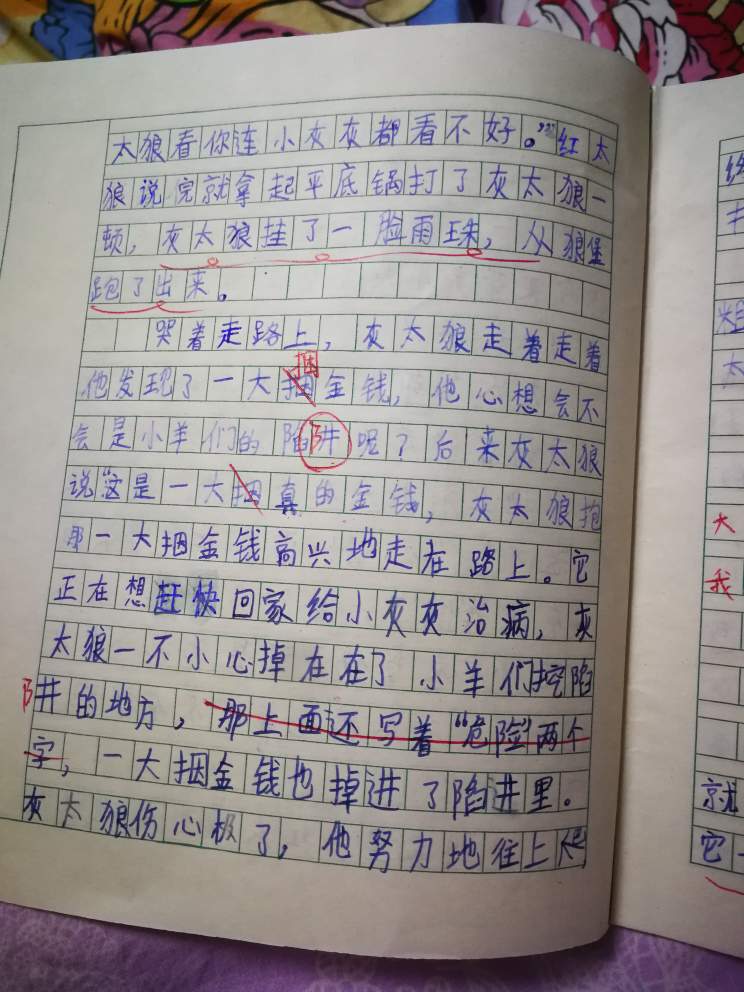 太狼看你连小灰灰都看不好。”红太
狼说完就拿起平底锅打了灰太狼一
顿，灰太狼挂了一脸雨珠，从狼堡
跑了出来。
哭着走路上，灰太狼走着走着
捆
他发现了一大捆金钱，他心想会不
会是小羊们的陷阱呢？后来灰太狼
说“这是一大捆真的金钱，灰太狼抱
那一大捆金钱高兴地走在路上。它
正在想赶快回家给小灰灰治病，灰
太狼一不小心掉在在了小羊们挖陷
阱的地方，那上面还写着“危险”两个
字，一大捆金钱也掉进了陷进里。
灰太狼伤心极了，他努力地往上爬
大
我
就
它